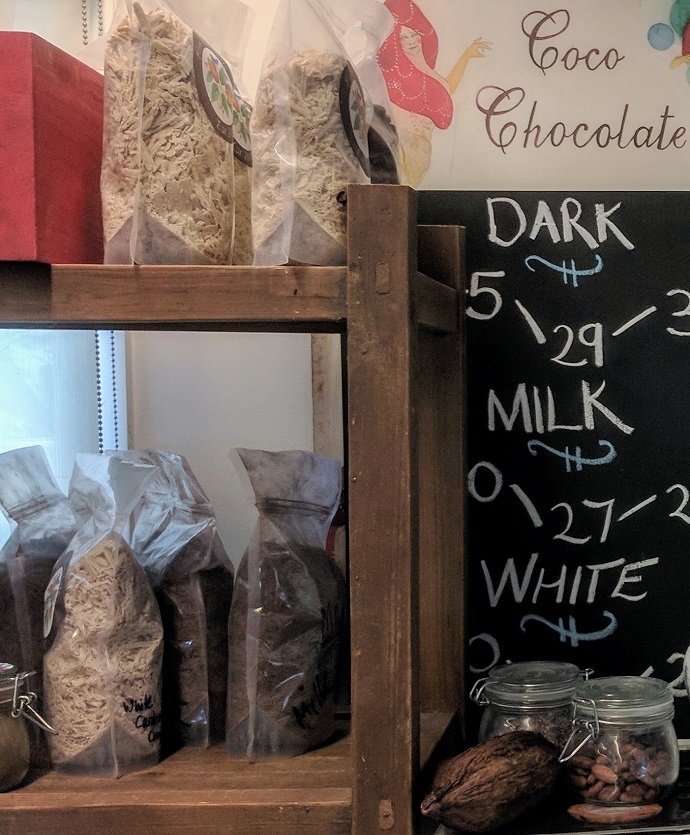 Coco
Chocolate
DARK
5 \ 29 / 3
MILK
0 \ 27 / 2
WHITE
0
2
White